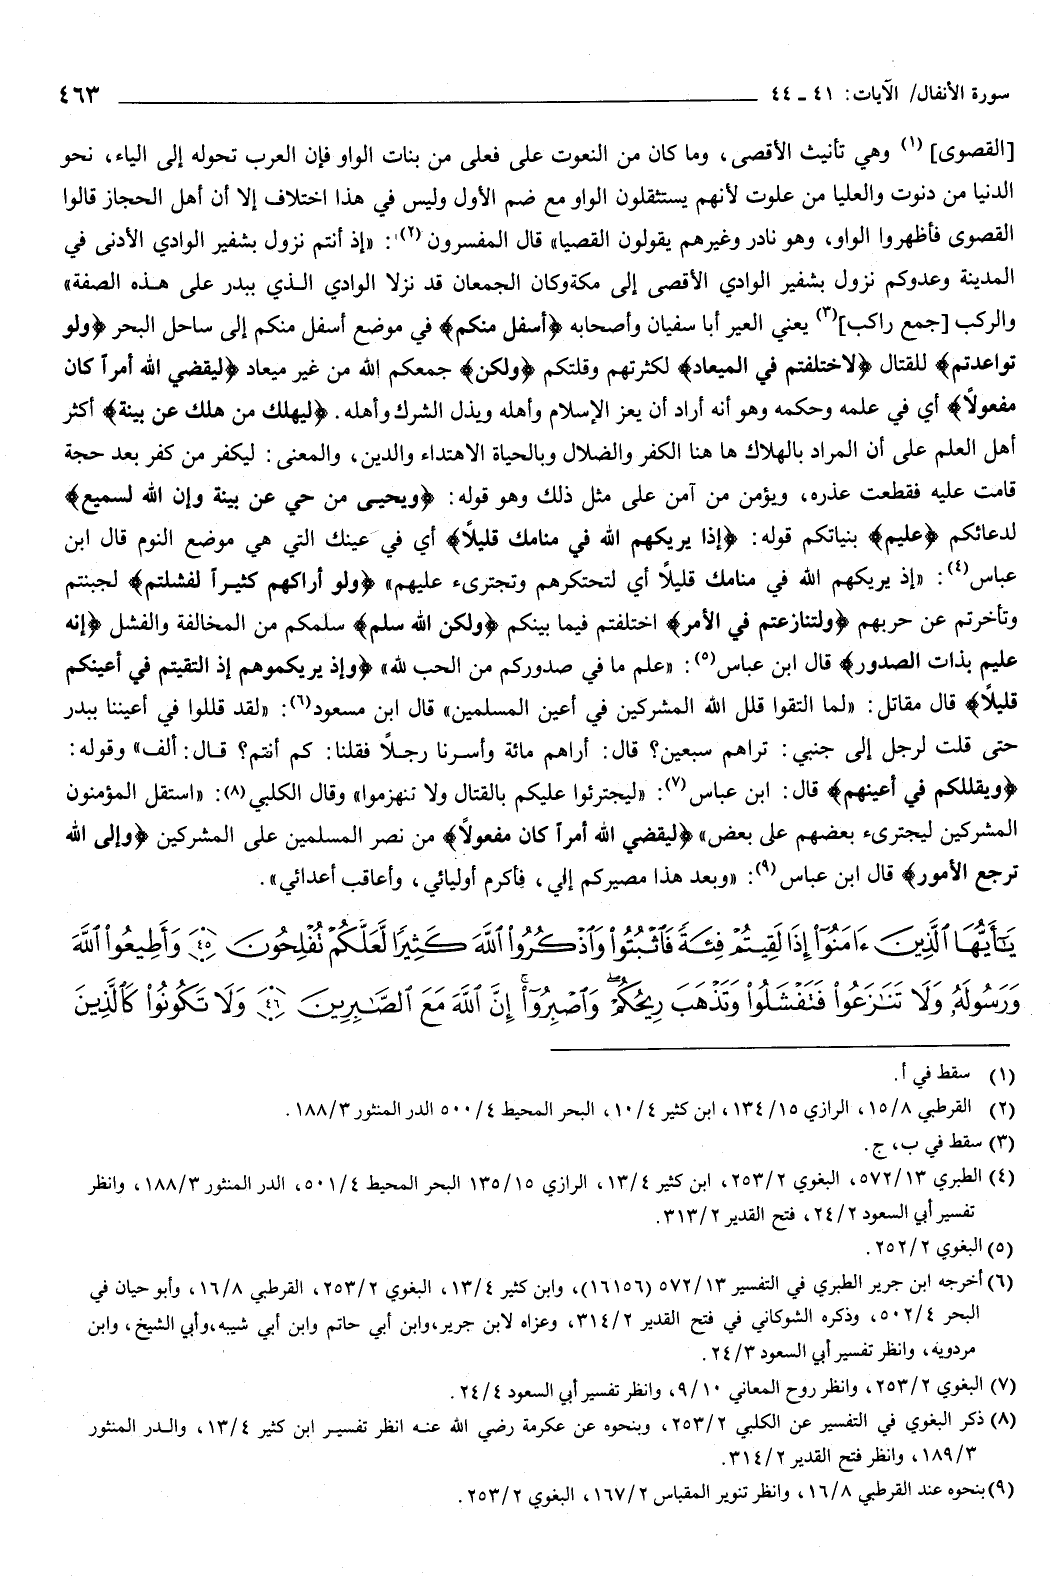 سورة الأنفال/ الآيات: ٤١ ـ ٤٤ ٤٦٣
[القصوى] (١) وهي تأنيث الأقصى، وما كان من النعوت على فعلى من بنات الواو فإن العرب تحوله إلى الياء، نحو
الدنيا من دنوت والعليا من علوت لأنهم يستثقلون الواو مع ضم الأول وليس في هذا اختلاف إلا أن أهل الحجاز قالوا
القصوى فأظهروا الواو، وهو نادر وغيرهم يقولون القصيا» قال المفسرون (٢): «إذ أنتم نزول بشفير الوادي الأدنى في
المدينة وعدوكم نزول بشفير الوادي الأقصى إلى مكةوكان الجمعان قد نزلا الوادي الذي ببدر على هذه الصفة»
والركب [جمع راكب](٣) يعني العير أبا سفيان وأصحابه ﴿أسفل منكم﴾ في موضع أسفل منكم إلى ساحل البحر ﴿ولو
تواعدتم﴾ للقتال ﴿لاختلفتم في الميعاد﴾ لكثرتهم وقلتكم ﴿ولكن﴾ جمعكم الله من غير ميعاد ﴿ليقضي الله أمراً كان
مفعولاً﴾ أي في علمه وحكمه وهو أنه أراد أن يعز الإسلام وأهله ويذل الشرك وأهله. ﴿ليهلك من هلك عن بينة﴾ أكثر
أهل العلم على أن المراد بالهلاك ها هنا الكفر والضلال وبالحياة الاهتداء والدين، والمعنى: ليكفر من كفر بعد حجة
قامت عليه فقطعت عذره، ويؤمن من آمن على مثل ذلك وهو قوله: ﴿ويحيى من حي عن بينة وإن الله لسميع﴾
لدعائكم ﴿عليم﴾ بنياتكم قوله: ﴿إذا يريكهم الله في منامك قليلاً﴾ أي في عينك التي هي موضع النوم قال ابن
عباس(٤): «إذ يريكهم الله في منامك قليلاً أي لتحتكرهم وتجترىء عليهم» ﴿ولو أراكهم كثيراً لفشلتم﴾ لجبنتم
وتأخرتم عن حربهم ﴿ولتنازعتم في الأمر﴾ اختلفتم فيما بينكم ﴿ولكن الله سلم﴾ سلمكم من المخالفة والفشل ﴿إنه
عليم بذات الصدور﴾ قال ابن عباس(٥): «علم ما في صدوركم من الحب لله» ﴿وإذ يريكموهم إذ التقيتم في أعينكم
قليلاً﴾ قال مقاتل: «لما التقوا قلل الله المشركين في أعين المسلمين» قال ابن مسعود(٦): «لقد قللوا في أعيننا ببدر
حتى قلت لرجل إلى جنبي: تراهم سبعين؟ قال: أراهم مائة وأسرنا رجلاً فقلنا: كم أنتم؟ قال: ألف» وقوله:
﴿ويقللكم في أعينهم﴾ قال: ابن عباس(٧): «ليجترئوا عليكم بالقتال ولا تنهزموا» وقال الكلبي(٨): «استقل المؤمنون
المشركين ليجترىء بعضهم على بعض» ﴿ليقضي الله أمراً كان مفعولاً﴾ من نصر المسلمين على المشركين ﴿وإلى الله
ترجع الأمور﴾ قال ابن عباس(٩): «وبعد هذا مصيركم إلي، فأكرم أوليائي، وأعاقب أعدائي».
يَـٰٓأَيُّهَا ٱلَّذِينَ ءَامَنُوٓاْ إِذَا لَقِيتُمْ فِئَةً فَٱثْبُتُواْ وَٱذْكُرُواْ ٱللَّهَ كَثِيرًا لَّعَلَّكُمْ تُفْلِحُونَ ﴿٤٥﴾ وَأَطِيعُواْ ٱللَّهَ
وَرَسُولَهُۥ وَلَا تَنَـٰزَعُواْ فَتَفْشَلُواْ وَتَذْهَبَ رِيحُكُمْ ۖ وَٱصْبِرُوٓاْ ۚ إِنَّ ٱللَّهَ مَعَ ٱلصَّـٰبِرِينَ ﴿٤٦﴾ وَلَا تَكُونُواْ كَٱلَّذِينَ
(١) سقط في أ.
(٢) القرطبي ١٥/٨، الرازي ١٣٤/١٥، ابن كثير ١٠/٤، البحر المحيط ٥٠٠/٤ الدر المنثور ١٨٨/٣.
(٣) سقط في ب، ج.
(٤) الطبري ٥٧٢/١٣، البغوي ٢٥٣/٢، ابن كثير ١٣/٤، الرازي ١٣٥/١٥ البحر المحيط ٥٠١/٤، الدر المنثور ١٨٨/٣، وانظر
تفسير أبي السعود ٢٤/٢، فتح القدير ٣١٣/٢.
(٥) البغوي ٢٥٢/٢.
(٦) أخرجه ابن جرير الطبري في التفسير ٥٧٢/١٣ (١٦١٥٦)، وابن كثير ١٣/٤، البغوي ٢٥٣/٢، القرطبي ١٦/٨، وأبو حيان في
البحر ٥٠٢/٤، وذكره الشوكاني في فتح القدير ٣١٤/٢، وعزاه لابن جرير،وابن أبي حاتم وابن أبي شيبه،وأبي الشيخ، وابن
مردويه، وانظر تفسير أبي السعود ٢٤/٣.
(٧) البغوي ٢٥٣/٢، وانظر روح المعاني ٩/١٠، وانظر تفسير أبي السعود ٢٤/٤.
(٨) ذكر البغوي في التفسير عن الكلبي ٢٥٣/٢، وبنحوه عن عكرمة رضي الله عنه انظر تفسير ابن كثير ١٣/٤، والدر المنثور
١٨٩/٣، وانظر فتح القدير ٣١٤/٢.
(٩) بنحوه عند القرطبي ١٦/٨، وانظر تنوير المقباس ١٦٧/٢، البغوي ٢٥٣/٢.